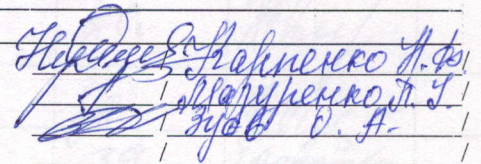 Карпенко Н.Ф.
Мазуренко П. І.
Зуб О. А.